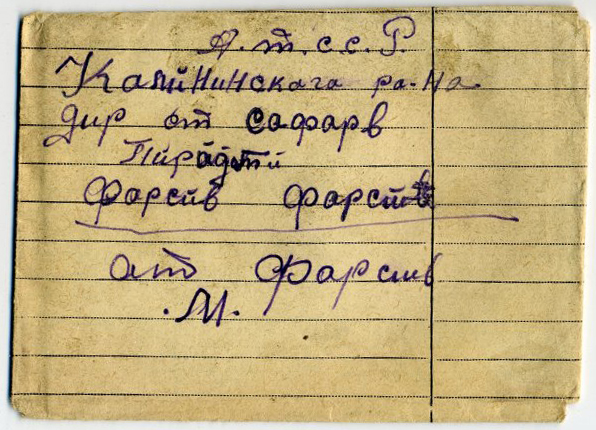 А. т. с. с. Р.
Калининскага ра-На
дир от Сафарв
Пирадтй
Фарсив Фарсив
ат Фарсив
.М.